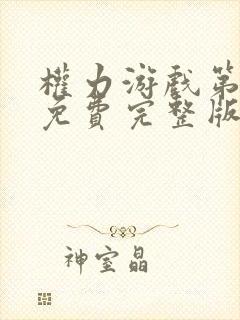 權力游戲第
免費完整版
神室晶